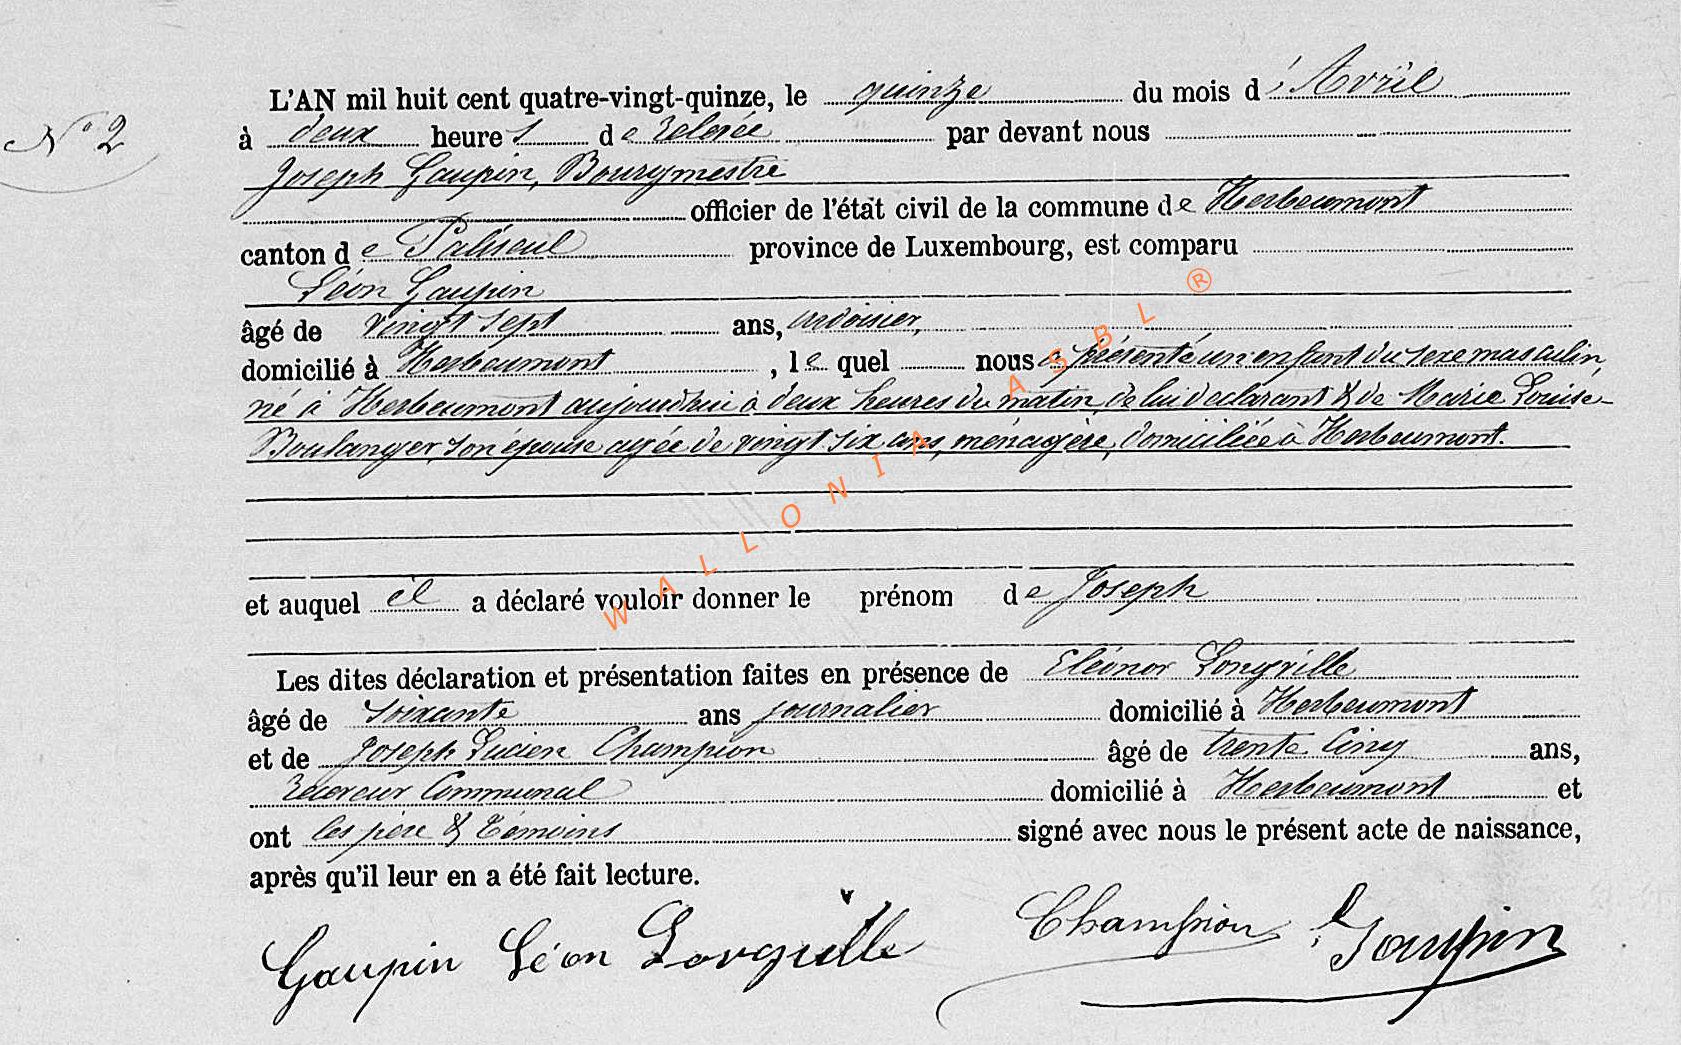 L'AN mil huit cent quatre-vingt-quinze, le quinze du mois d'Avril
N° 2
à deux heures de relevée par devant nous
Joseph Gaupin, Bourgmestre
officier de l'état civil de la commune de Herbeumont
canton de Paliseul province de Luxembourg, est comparu
Léon Gaupin
âgé de vingt sept ans, ardoisier,
domicilié à Herbeumont, le quel nous a présenté un enfant du sexe masculin,
né à Herbeumont aujourdhui à deux heures du matin, de lui déclarant & de Marie Louise
Boulanger, son épouse agée de vingt six ans, ménagère, domiciliée à Herbeumont.
et auquel il a déclaré vouloir donner le prénom de Joseph
Les dites déclaration et présentation faites en présence de Eléonor Longville
âgé de soixante ans journalier domicilié à Herbeumont
et de Joseph Lucien Champion âgé de trente cinq ans,
Receveur Communal domicilié à Herbeumont et
ont les père & témoins signé avec nous le présent acte de naissance,
après qu'il leur en a été fait lecture.
Gaupin Léon Longville Champion J Gaupin
WALLONIA ASBL ®